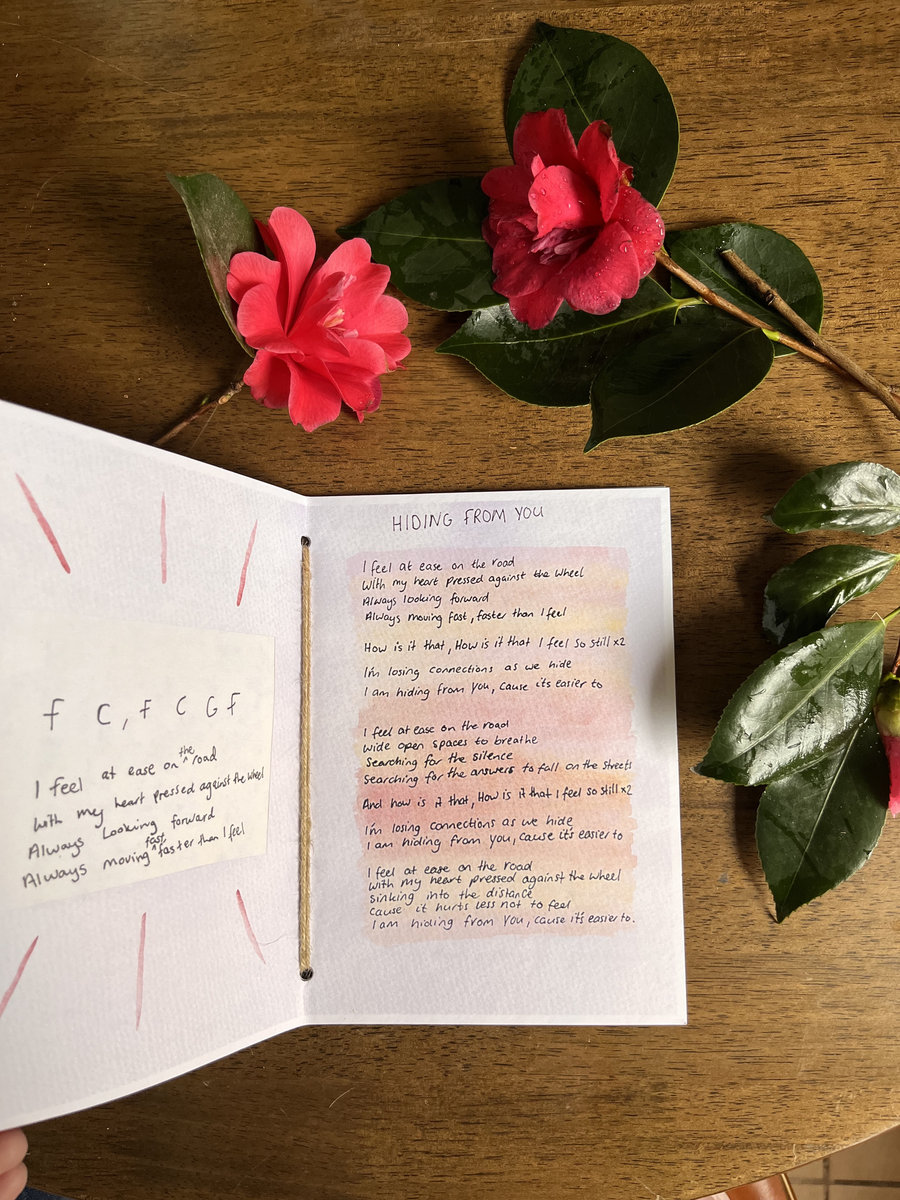 F C, F C G F
I feel at ease on the road
With my heart pressed against the wheel
Always Looking forward
Always moving fast faster than I feel
HIDING FROM YOU
I feel at ease on the road
With my heart pressed against the wheel
Always looking forward
Always moving fast, faster than I feel
How is it that, How is it that I feel so still x2
I'm losing connections as we hide
I am hiding from you, cause its easier to
I feel at ease on the road
Wide open spaces to breathe
Searching for the silence
Searching for the answers to fall on the streets
And how is it that, How is it that I feel so still x2
I'm losing connections as we hide
I am hiding from you, cause it's easier to
I feel at ease on the road
With my heart pressed against the wheel
Sinking into the distance
Cause it hurts less not to feel
I am hiding from you, cause it's easier to.